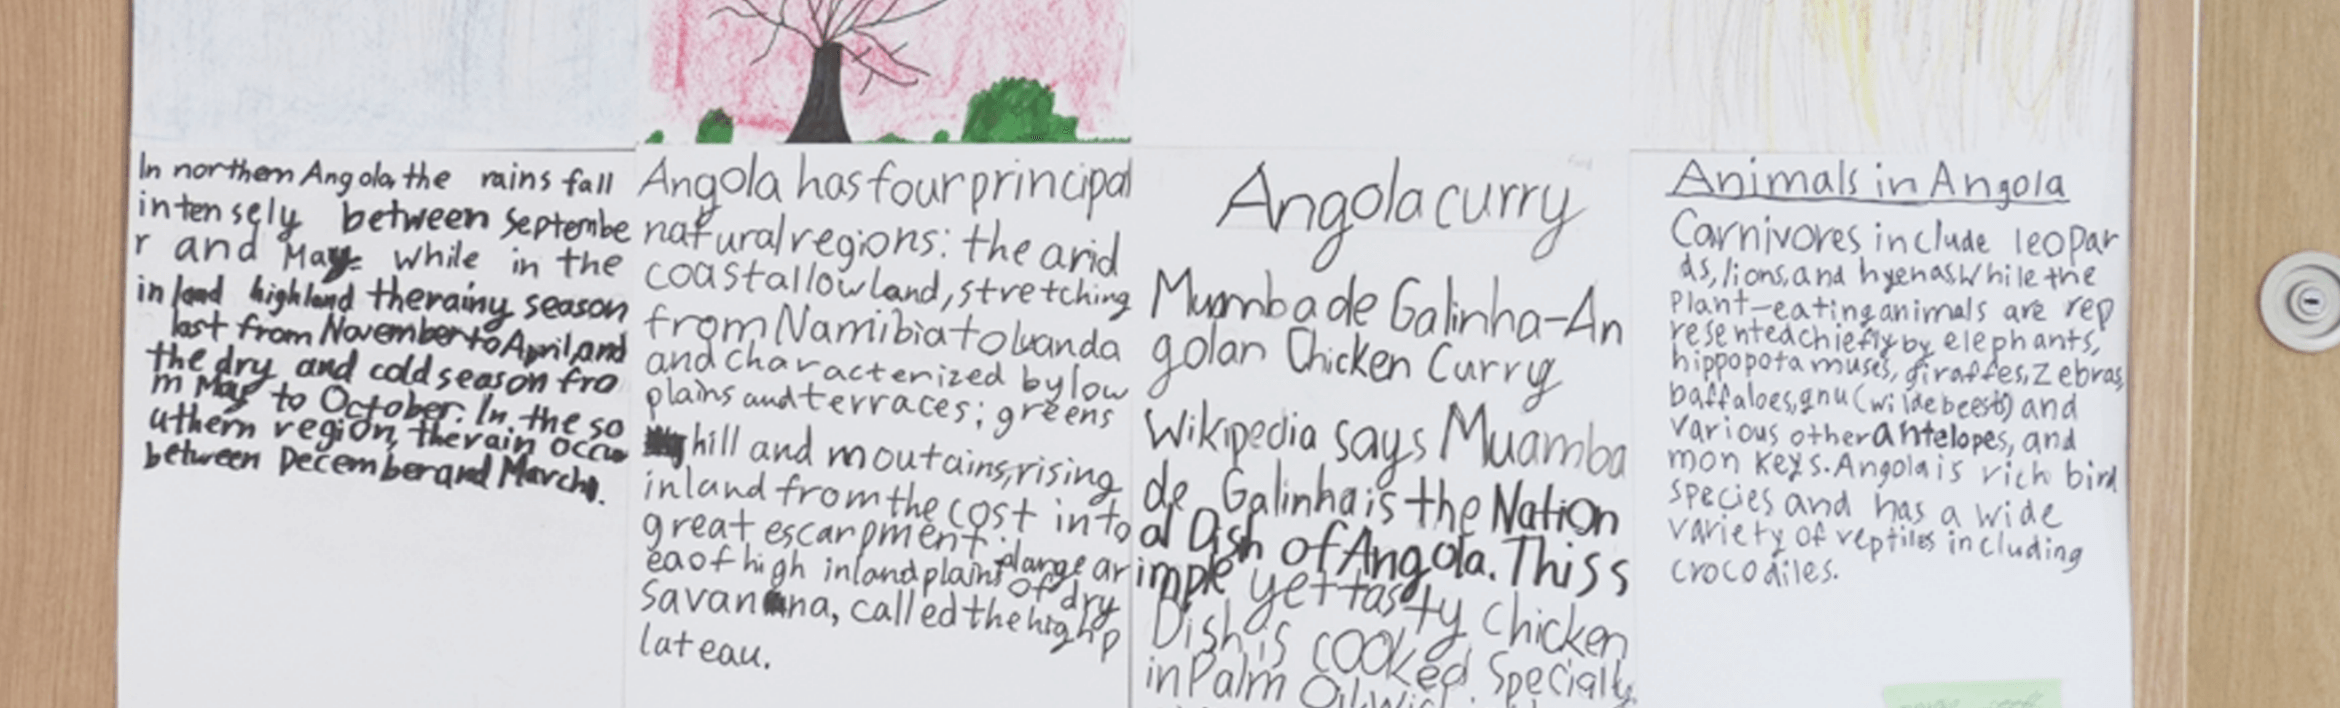 In northern Angola, the rains fall
intensely between Septembe
r and May. while in the
inland highland therainy season
last from November to April, and
the dry and cold season fro
m May to October. In the so
uthern region, therain occu
between December and March.
Angola has four principal
natural regions: the arid
coastal lowland, stretching
from Namibia to luanda
and characterized by low
plains and terraces; greens
hill and moutains, rising
inland from the cost into
great escarpment; a large ar
ea of high inland plains of dry
savanna, called the high p
lateau.
Angola curry
Muamba de Galinha-An
golan Chicken Curry
Wikipedia says Muamba
de Galinha is the Nation
al Dish of Angola. This s
imple yet tasty chicken
Dish is cooked Specially
in Palm Oil
Animals in Angola
Carnivores include leopar
ds, lions, and hyenas. While the
plant-eating animals are rep
resented chiefly by elephants,
hippopotamuses, giraffes, Zebras,
baffaloes, gnu (wildebeest) and
various other antelopes, and
monkeys. Angola is rich bird
species and has a wide
variety of reptiles including
crocodiles.